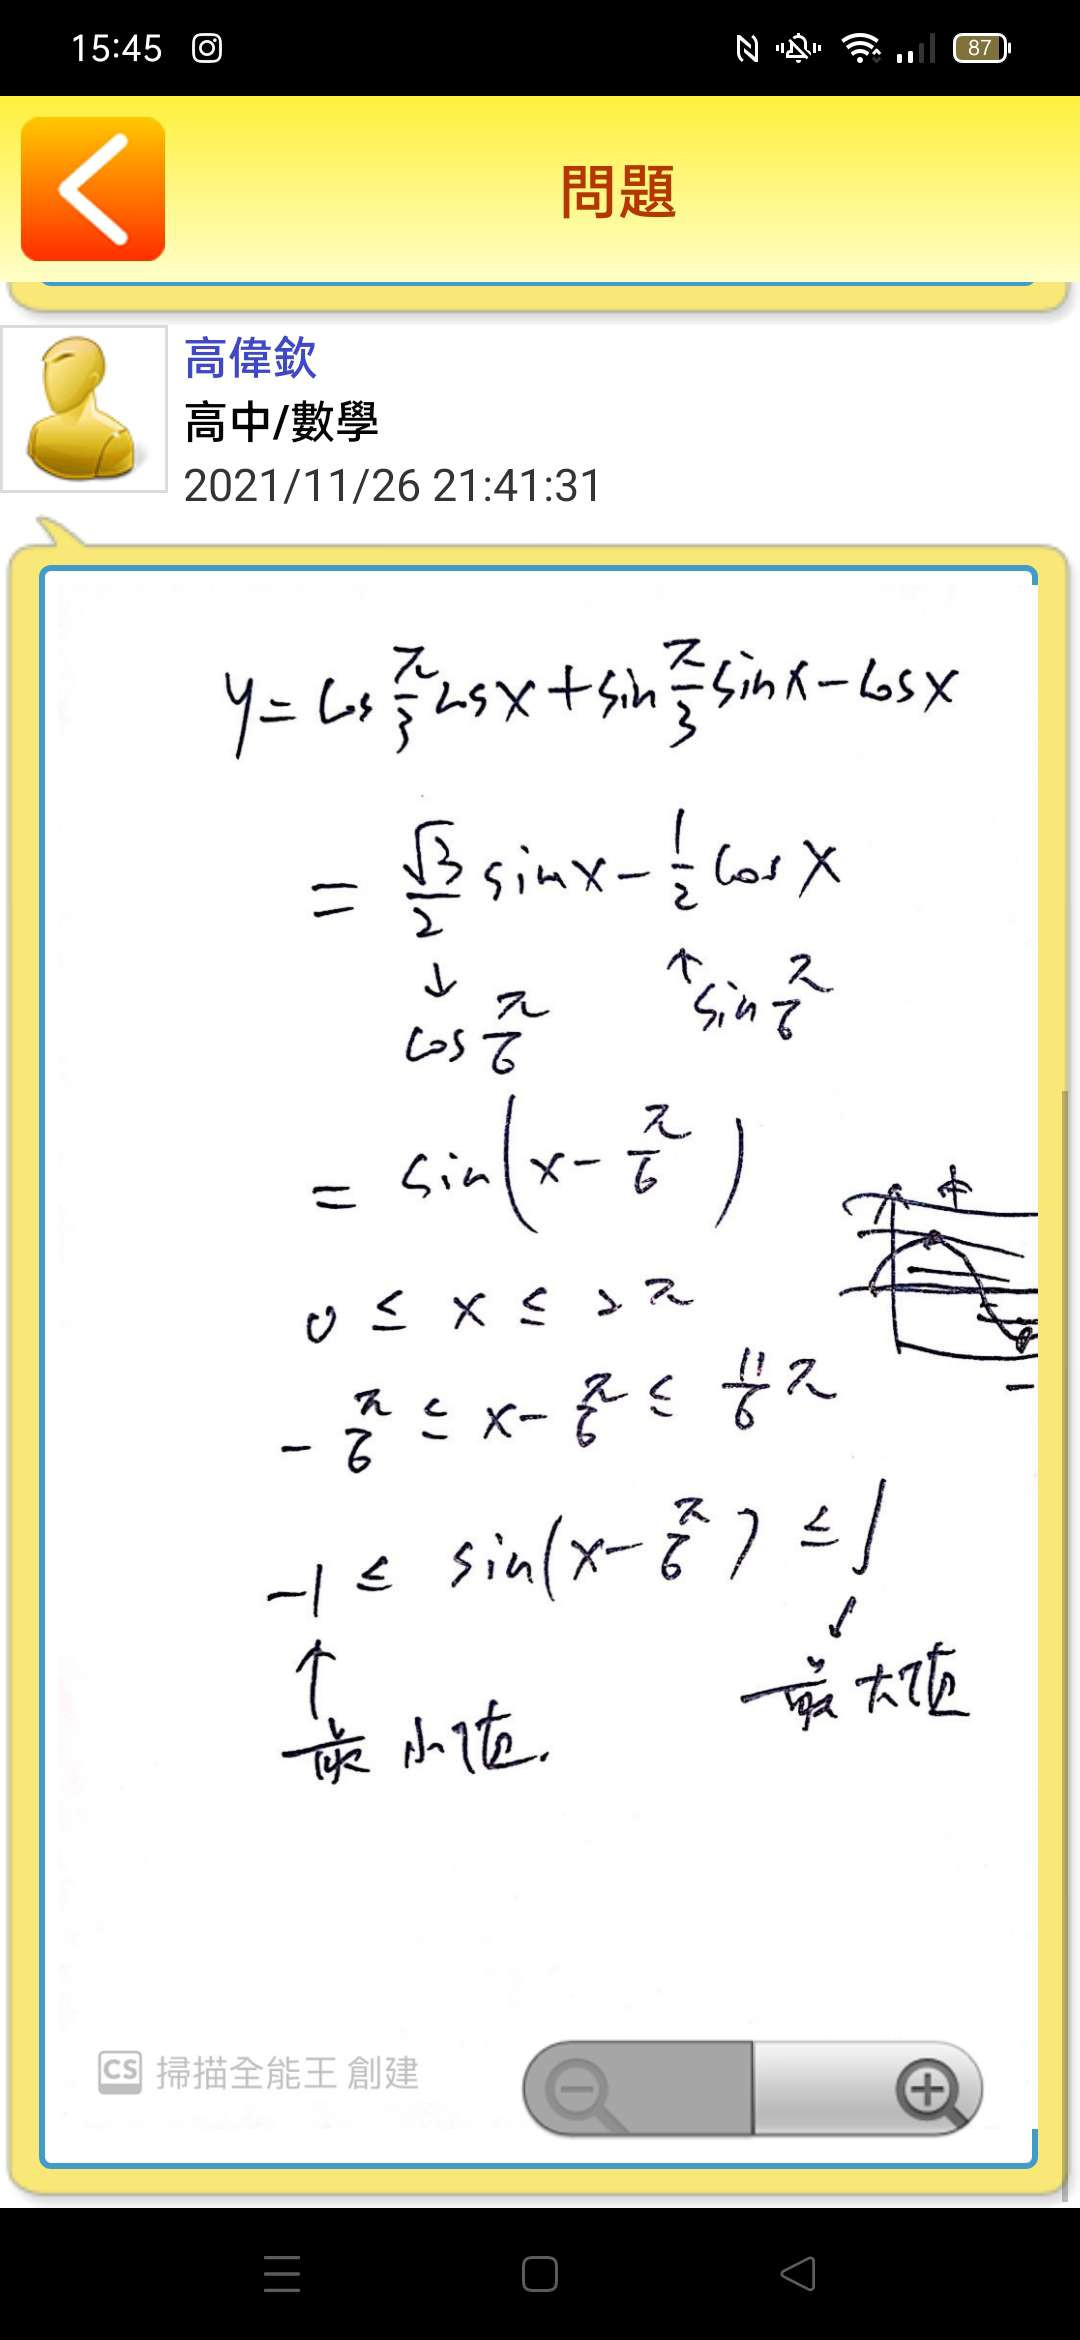 15:45
87
問題
高偉欽
高中/數學
2021/11/26 21:41:31
y = cos π/3 cosx + sin π/3 sinx - cosx
= √3/2 sinx - 1/2 cosx
↓ ↑
cos π/6 sin π/6
= sin(x - π/6)
0 ≤ x ≤ 2π
-π/6 ≤ x - π/6 ≤ 11/6 π
-1 ≤ sin(x - π/6) ≤ 1
最大值
最小值.
CS 掃描全能王 創建